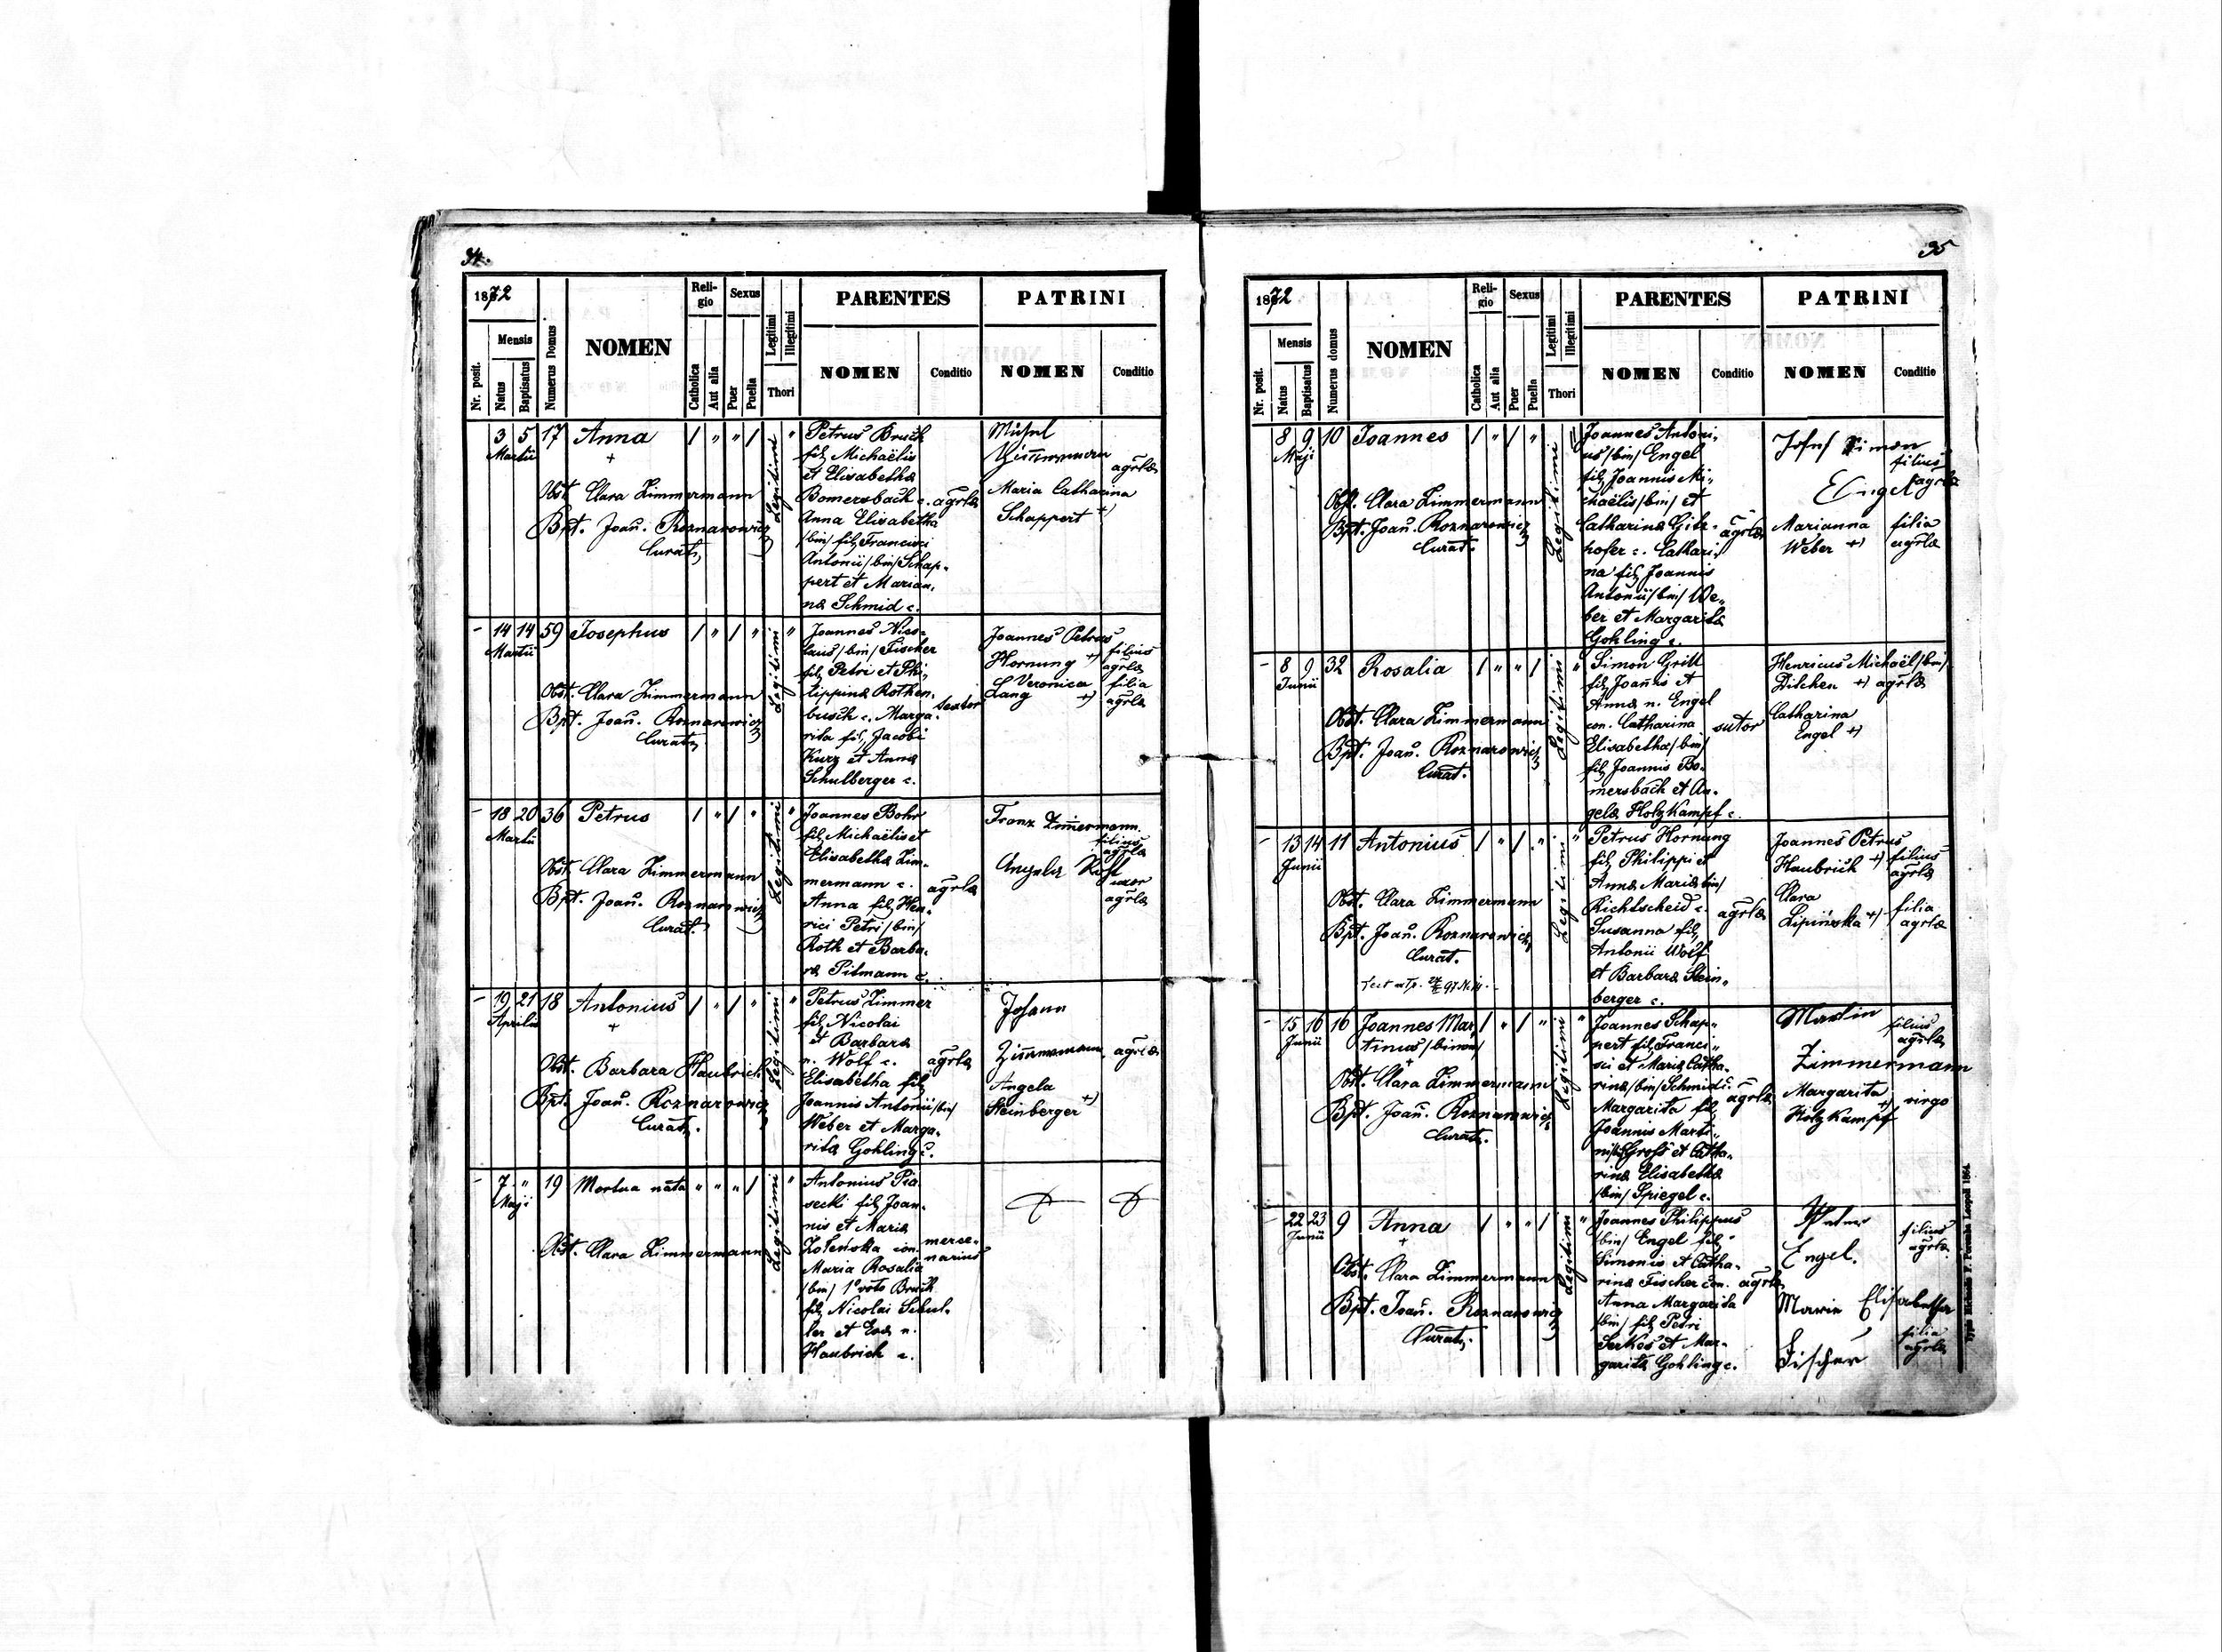 34.
1872
Nr. posit.
Mensis
Natus
Baptisatus
Numerus Domus
NOMEN
Religio
Catholica
Aut alia
Sexus
Puer
Puella
Legitimi
Illegitimi
Thori
PARENTES
NOMEN
Conditio
PATRINI
NOMEN
Conditio
3 5 17 Anna / " " / "
Martii
+
Obst. Clara Zimmermann
Bpt. Joan. Roznarowicz
Curat.
Legitimi
Petrus Bruch
fil. Michaëlis
et Elisabetha
Bomersbach c. agrla
Anna Elisabetha
/bin/ fil. Francisci
Antonii /bin/ Schap-
pert et Marian-
na Schmid c.
Michel
Zimmermann
agrla
Maria Catharina
Schappert +)
- 14 14 59 Josephus / " / " "
Martii
Obst. Clara Zimmermann
Bpt. Joan. Roznarowicz
Curat.
Legitimi
Joannes Nico-
laus /bin/ Fischer
fil. Petri et Phi-
lippina Rothen-
busch c. Marga-
rita fil. Jacobi
Kurz et Anna
Schulberger c.
textor
Joannes Petrus
Hornung +) filius
agrla
Veronica filia
Lang +) agrla
- 18 20 36 Petrus / " / " "
Martii
Obst. Clara Zimmermann
Bpt. Joan. Roznarowicz
Curat.
Legitimi
Joannes Bohr
fil. Michaëlis et
Elisabetha Zim-
mermann c. agrla
Anna fil. Hen-
rici Petri /bin/
Roth et Barba-
ra Pitmann c.
Franz Zimmermann
filius
agrla
Angela
uxor
agrla
- 19 21 18 Antonius / " / " "
Aprilis
+
Obst. Barbara Haubrich
Bpt. Joan. Roznarowicz
Curat.
Legitimi
Petrus Zimmer
fil. Nicolai
et Barbara
n. Wolf c. agrla
Elisabetha fil.
Joannis Antonii /bin/
Weber et Marga-
rita Gohling c.
Johann
Zimmermann agrla
Angela
Steinberger +)
- 7 " 19 Mortua nata " " " / "
Maji
Obst. Clara Zimmermann
Legitimi
Antonius Pia-
secki fil. Joan-
nis et Maria
con. merce-
Maria Rosalia narius
/bin/ 1º voto Bruch
fil. Nicolai Schul-
ler et Eva n.
Haubrich c.
35
1872
Nr. posit.
Mensis
Natus
Baptisatus
Numerus domus
NOMEN
Religio
Catholica
Aut alia
Sexus
Puer
Puella
Legitimi
Illegitimi
Thori
PARENTES
NOMEN
Conditio
PATRINI
NOMEN
Conditio
8 9 10 Joannes / " / " "
Maji
Obst. Clara Zimmermann
Bpt. Joan. Roznarowicz
Curat.
Legitimi
Joannes Antoni-
us /bin/ Engel
fil. Joannis Mi-
chaëlis /bin/ et
Catharina Gitz-
hofer c. Cathari- agrla
na fil. Joannis
Antonii /bin/ We-
ber et Margarita
Gohling c.
Josef Simon
filius
Engel agrla
Marianna filia
Weber +) agrla
- 8 9 32 Rosalia / " " / "
Junii
Obst. Clara Zimmermann
Bpt. Joan. Roznarowicz
Curat.
Legitimi
Simon Gritt
fil. Joannis et
Anna n. Engel
con. Catharina sutor
Elisabetha /bin/
fil. Joannis Bo-
mersbach et An-
gela Holzkampf c.
Henricus Michaël /bin/
Dilchen +) agrla
Catharina
Engel +)
- 13 14 11 Antonius / " / " "
Junii
Obst. Clara Zimmermann
Bpt. Joan. Roznarowicz
Curat.
Legitimi
Petrus Hornung
fil. Philippi et
Anna Maria /bin/
Richtscheid c. agrla
Susanna fil.
Antonii Wolf
et Barbara Stein-
berger c.
Joannes Petrus
Haubrich +) filius
agrla
Clara filia
Lipińska +) agrla
- 15 16 16 Joannes Mar- / " / " "
Junii tinus /binom/
+
Obst. Clara Zimmermann
Bpt. Joan. Roznarowicz
Curat.
Legitimi
Joannes Schap-
pert fil. Franci-
sci et Maria Catha-
rina /bin/ Schmid c. agrla
Margarita fil.
Joannis Marti-
ni /bin/ Groß et Catha-
rina Elisabetha
/bin/ Spiegel c.
Martin filius
agrla
Zimmermann
Margarita virgo
Holzkampf +)
- 22 23 9 Anna / " " / "
Junii
+
Obst. Clara Zimmermann
Bpt. Joan. Roznarowicz
Curat.
Legitimi
Joannes Philippus
/bin/ Engel fil.
Simonis et Catha-
rina Fischer con. agrla
Anna Margarita
/bin/ fil. Petri
Serkos et Mar-
garita Gohling c.
Peter filius
Engel. agrla
Maria Elisabetha
filia
Fischer agrla